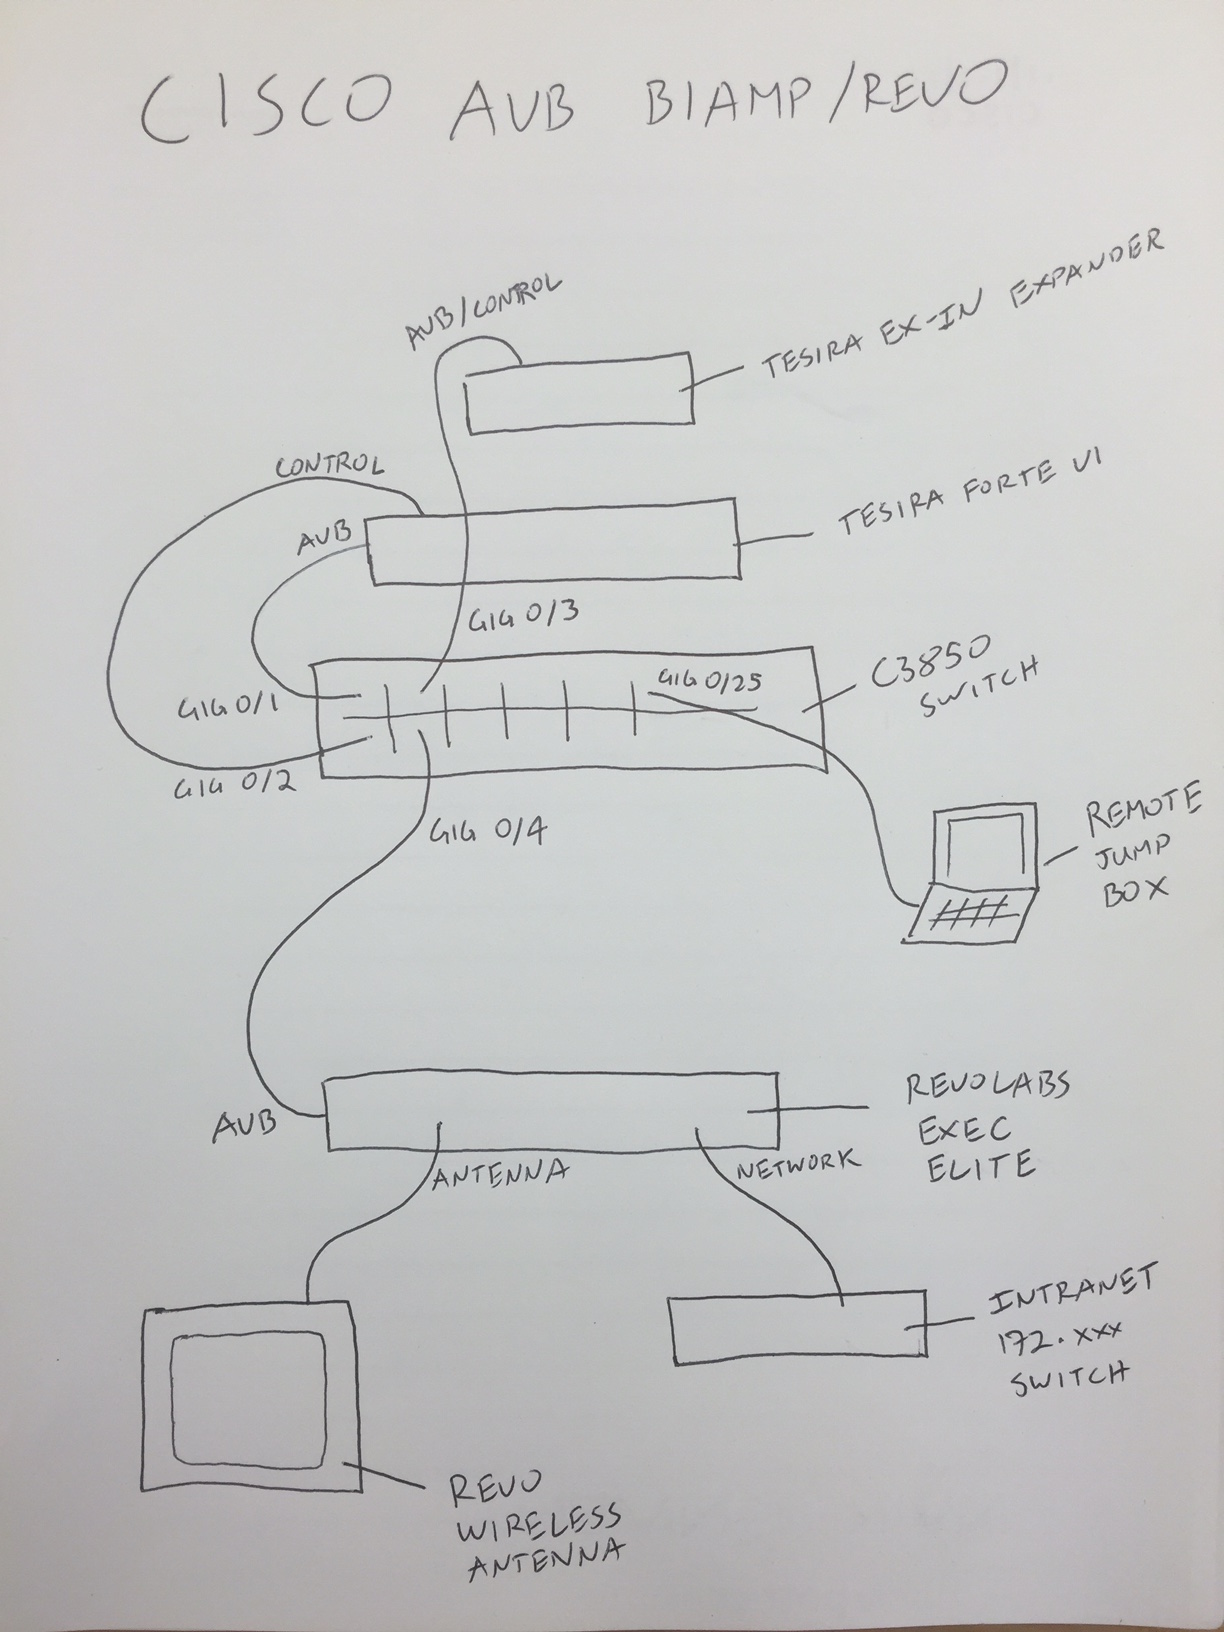 CISCO AVB BIAMP/REVO
AVB/CONTROL
TESIRA EX-IN EXPANDER
CONTROL
AVB
TESIRA FORTE VI
GIG 0/3
GIG 0/1
GIG 0/25
C3850
SWITCH
GIG 0/2
GIG 0/4
REMOTE
JUMP
BOX
AVB
ANTENNA
NETWORK
REVOLABS
EXEC
ELITE
INTRANET
172.xxx
SWITCH
REVO
WIRELESS
ANTENNA